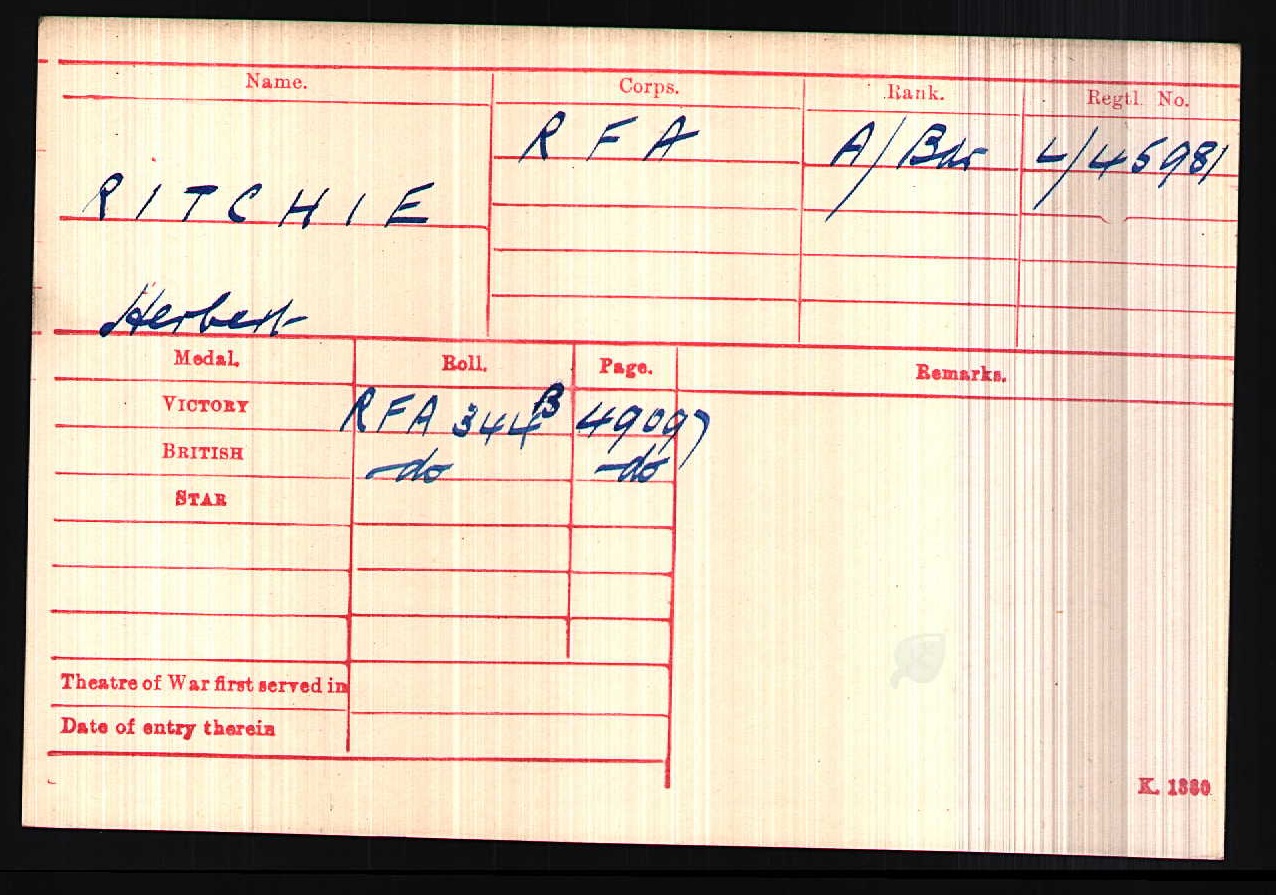 Name. Corps. Rank. Regtl. No.
R F A A/Bdr L/45981
RITCHIE
Herbert
Medal. Roll. Page. Remarks.
VICTORY RFA 344B 49097
BRITISH -do -do
STAR
Theatre of War first served in
Date of entry therein
K. 1380